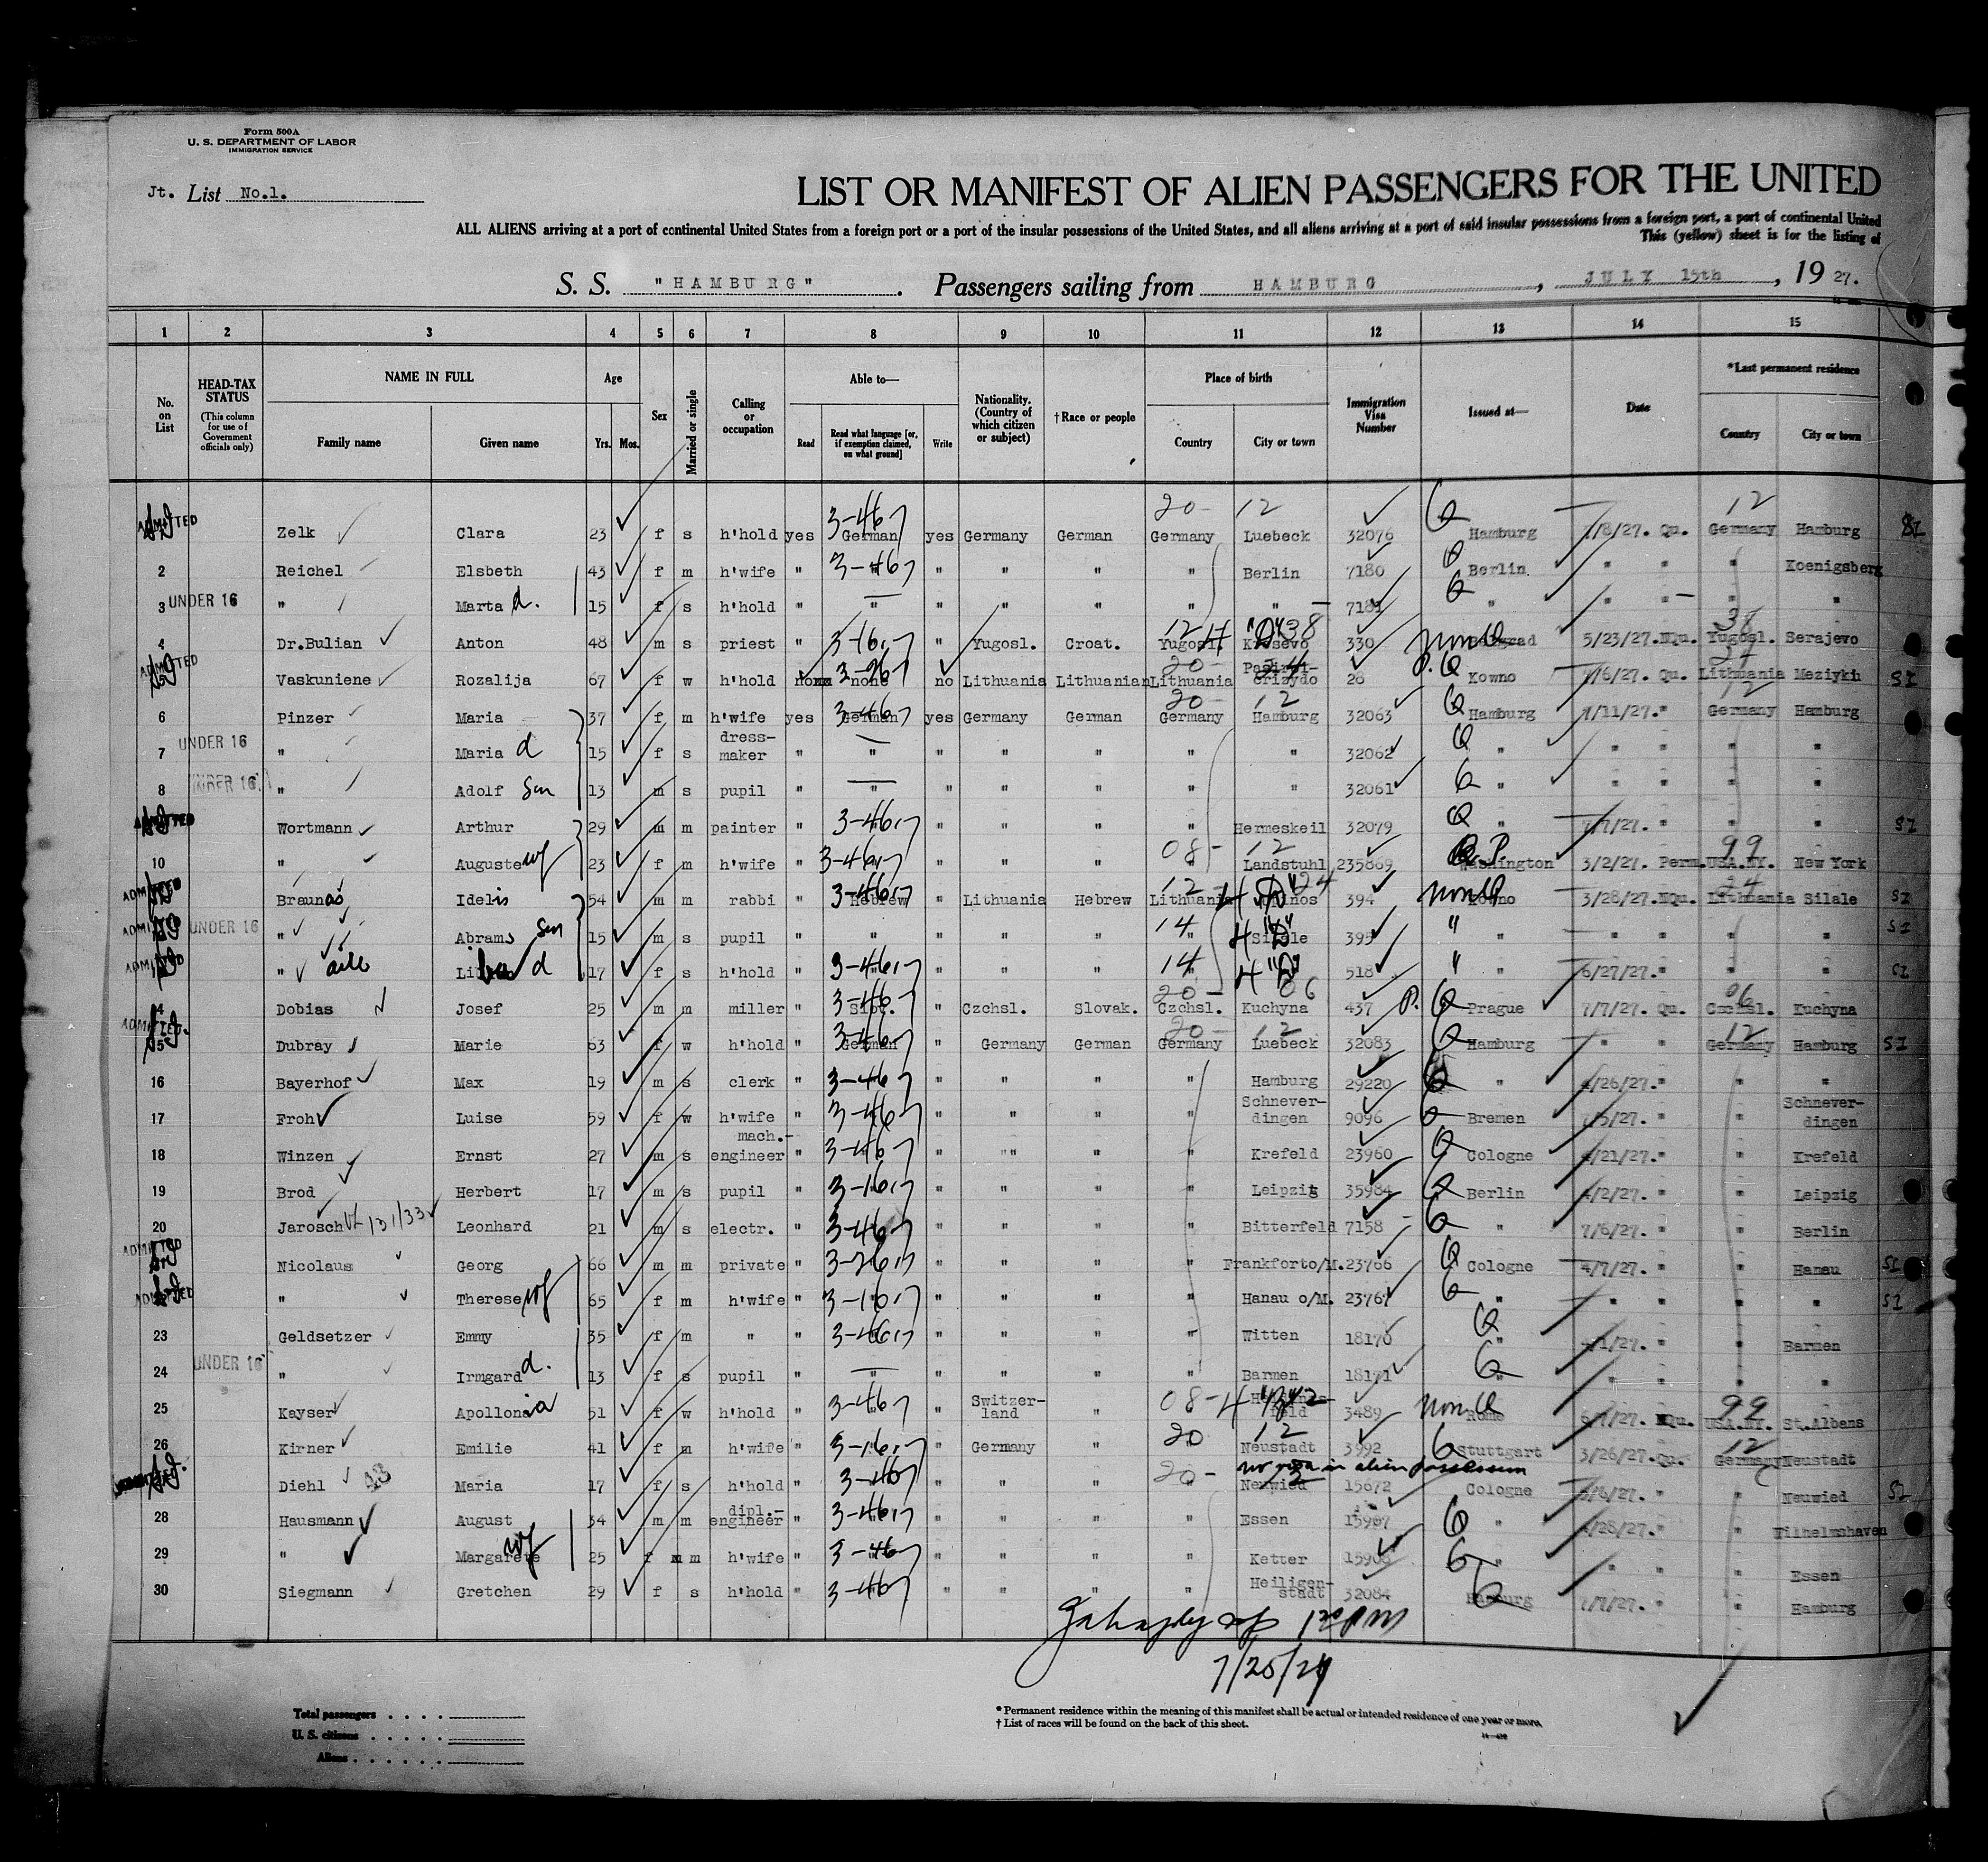 Form 500A
U. S. DEPARTMENT OF LABOR
IMMIGRATION SERVICE
Jt. List No.1.
LIST OR MANIFEST OF ALIEN PASSENGERS FOR THE UNITED
ALL ALIENS arriving at a port of continental United States from a foreign port or a port of the insular possessions of the United States, and all aliens arriving at a port of said insular possessions from a foreign port, a port of continental United
This (yellow) sheet is for the listing of
S. S. "HAMBURG". Passengers sailing from HAMBURG, JULY 15th, 1927.
1 2 3 4 5 6 7 8 9 10 11 12 13 14 15
No. on List
HEAD-TAX STATUS (This column for use of Government officials only)
NAME IN FULL Family name Given name
Age Yrs. Mos.
Sex
Married or single
Calling or occupation
Able to— Read Read what language [or, if exemption claimed, on what ground] Write
Nationality. (Country of which citizen or subject)
† Race or people
Place of birth Country City or town
Immigration Visa Number
Issued at—
Date
*Last permanent residence Country City or town
ADMITTED Zelk Clara 23 f s h'hold yes German yes Germany German Germany Luebeck 32076 Hamburg 7/8/27. Qu. Germany Hamburg SI
2 Reichel Elsbeth 43 f m h'wife " " " " " " Berlin 7180 Berlin " " " Koenigsberg
3 UNDER 16 " Marta d. 15 f s h'hold " " " " " " " 7181 " " " " "
4 Dr.Bulian Anton 48 m s priest " " Yugosl. Croat. Yugosl. Kresevo 330 Non Q 5/23/27. NQu. Yugosl. Serajevo
ADMITTED Vaskuniene Rozalija 67 f w h'hold none no Lithuania Lithuanian Lithuania 28 P. Q Kowno 7/6/27. Qu. Lithuania Meziykh SI
6 Pinzer Maria 37 f m h'wife yes German yes Germany German Germany Hamburg 32063 Hamburg 7/11/27. " Germany Hamburg
7 UNDER 16 " Maria d 15 f s dress-maker " " " " " " " 32062 " " " " "
8 UNDER 16 " Adolf son 13 m s pupil " " " " " " " 32061 " " " " "
ADMITTED Wortmann Arthur 29 m m painter " " " " " " Hermeskeil 32079 " 7/7/27. " " "
SI
10 " Auguste wf 23 f m h'wife " " " " " Landstuhl 235869 Washington 3/2/27. Perm. USA.NY. New York
ADMITTED Braunas Idelis 54 m m rabbi " Hebrew " Lithuania Hebrew Lithuania 394 Non Q Kowno 3/28/27. NQu. Lithuania Silale SI
ADMITTED UNDER 16 " Abrams son 15 m s pupil " " " " " " Silale 395 " " " " " SI
ADMITTED " d 17 f s h'hold " " " " " 518 " 6/27/27. " " " SI
14 Dobias Josef 25 m m miller " " Czchsl. Slovak. Czchsl. Kuchyna 437 P. Q Prague 7/7/27. Qu. Czchsl. Kuchyna
ADMITTED 15 Dubray Marie 63 f w h'hold " German " Germany German Germany Luebeck 32083 Hamburg " " Germany Hamburg SI
16 Bayerhof Max 19 m s clerk " " " " " " Hamburg 29220 " 4/26/27. " " "
17 Froh Luise 59 f w h'wife " " " " " " Schneverdingen 9096 Bremen 7/5/27. " " Schneverdingen
18 Winzen Ernst 27 m s mach.-engineer " " " " " " Krefeld 23960 Cologne 4/21/27. " " Krefeld
19 Brod Herbert 17 m s pupil " " " " " " Leipzig 35984 Berlin 4/2/27. " " Leipzig
20 Jarosch Leonhard 21 m s electr. " " " " " " Bitterfeld 7158 " 7/6/27. " " Berlin
ADMITTED Nicolaus Georg 66 m m private " " " " " " Frankforto/M. 23766 Cologne 4/7/27. " " Hanau SI
ADMITTED " Therese wf 65 f m h'wife " " " " " " Hanau o/M. 23767 " " " " " SI
23 Geldsetzer Emmy 35 f m " " " " " " " Witten 18170 " 4/1/27. " " Barmen
24 UNDER 16 " Irmgard d. 13 f s pupil " " " " " " Barmen 18171 " " " " "
25 Kayser Apollonia 51 f w h'hold " " Switzerland " 3489 Non Q Rome NQu. USA.NY. St.Albans
26 Kirner Emilie 41 f m h'wife " " Germany " " Neustadt 3992 Stuttgart 3/26/27. Qu. Germany Neustadt
no visa in alien possession
Diehl Maria 17 f s h'hold " " " " " Neuwied 15672 Cologne " " Neuwied SI
28 Hausmann August 34 m m dipl.-engineer " " " " " Essen 15907 " 4/28/27. " " Wilhelmshaven
29 " Margarete wf 25 f m h'wife " " " " " Ketter 15908 " " " " Essen
30 Siegmann Gretchen 29 f s h'hold " " " " " Heiligenstadt 32084 Hamburg 7/7/27. " " Hamburg
7/25/27
Total passengers
U. S. citizens
Aliens
* Permanent residence within the meaning of this manifest shall be actual or intended residence of one year or more.
† List of races will be found on the back of this sheet.